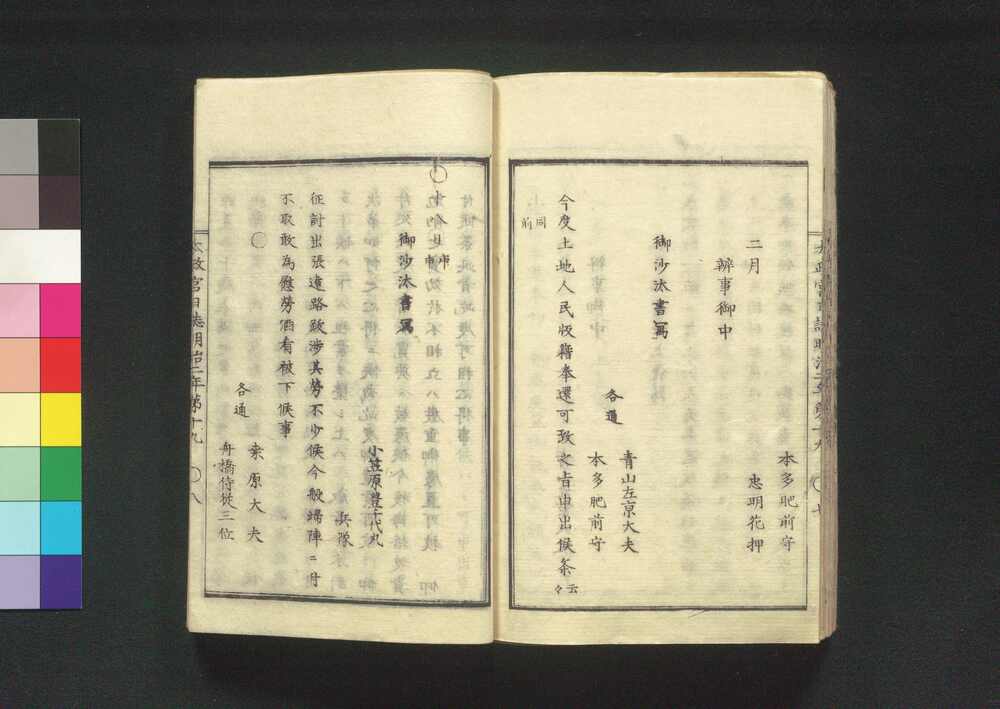 本多肥前守
忠明花押
二月
辨事御中
御沙汰書寫
青山左京大夫
各通
本多肥前守
今度土地人民版籍奉還可致之旨申出候条云々
同前
太政官日誌明治二年第十九 〇七
〇十八日
御沙汰書寫
小笠原豊千代丸
兵隊
征討出張遠路跋渉其勞不少候今般歸陣ニ付
不取敢為慰勞酒肴被下候事
〇
各通
桒原大夫
舟橋侍従三位
太政官日誌明治二年第十九 〇八